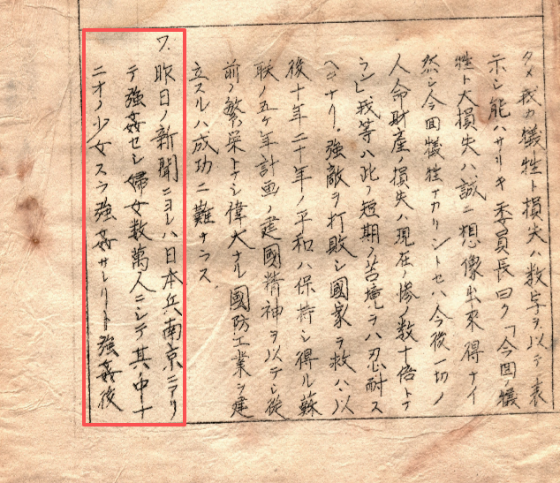 タメ我カ犠牲ト損失ハ数字ヲ以テ表
示シ能ハサリキ委員長曰ク「今回ノ犠
牲ト大損失ハ誠ニ想像出来得ナイ
然シ今回犠牲ナカリントセハ今後一切ノ
人命財産ノ損失ハ現在ノ惨ノ数十倍トナ
ラン我等ハ此ノ短期ノ苦痛ヲハ忍耐ス
ヘキナリ、強敵ヲ打敗シ國家ヲ救ハハ以
後十年二十年ノ平和ハ保持シ得ル蘇
联ノ五ケ年計画ノ建國精神ヲ以テシ從
前ノ繁栄トテシ偉大ナル國防工業ヲ建
立スルハ成功ニ難ナラス、
ワ、昨日ノ新聞ニヨレハ日本兵南京ニアリ
テ強姦セシ婦女数萬人ニシテ其中十
ニオノ少女スラ強姦サレリト強姦後